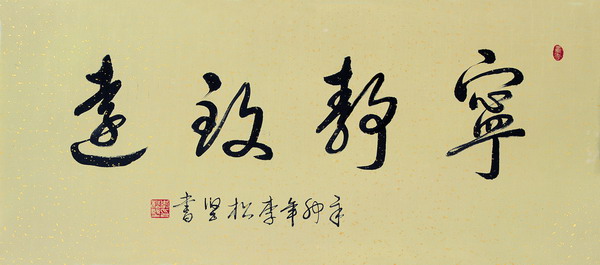 寧靜致遠
辛卯年李松坚書